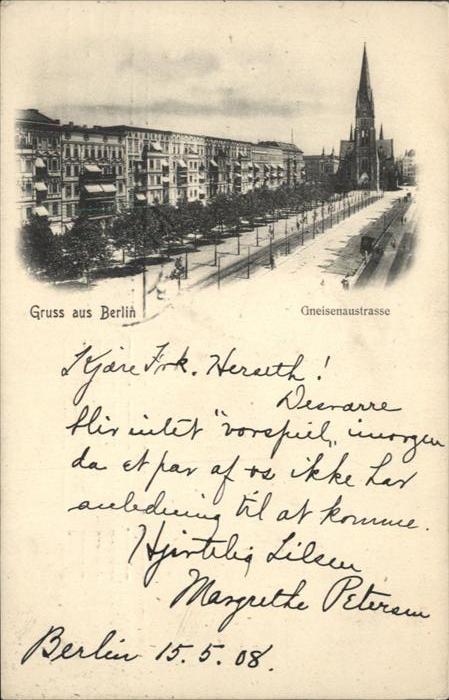 Gruss aus Berlin
Gneisenaustrasse
Kjære Frk. Herseth!
Desværre
blir intet "vorspiel" imorgen
da et par af os ikke har
anledning til at komme.
Hjertelig Hilsen
Margrethe Petersen
Berlin 15.5.08.